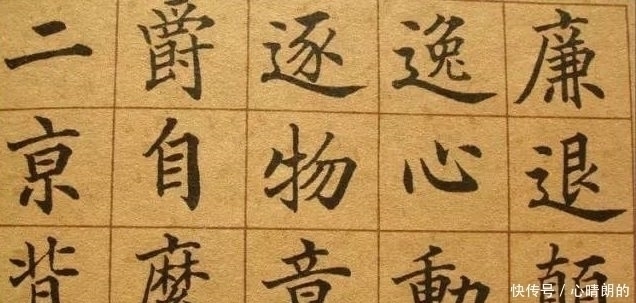 廉退顛
逸心動
逐物意
爵自縻
二亰背
快传号 / 心晴朗的